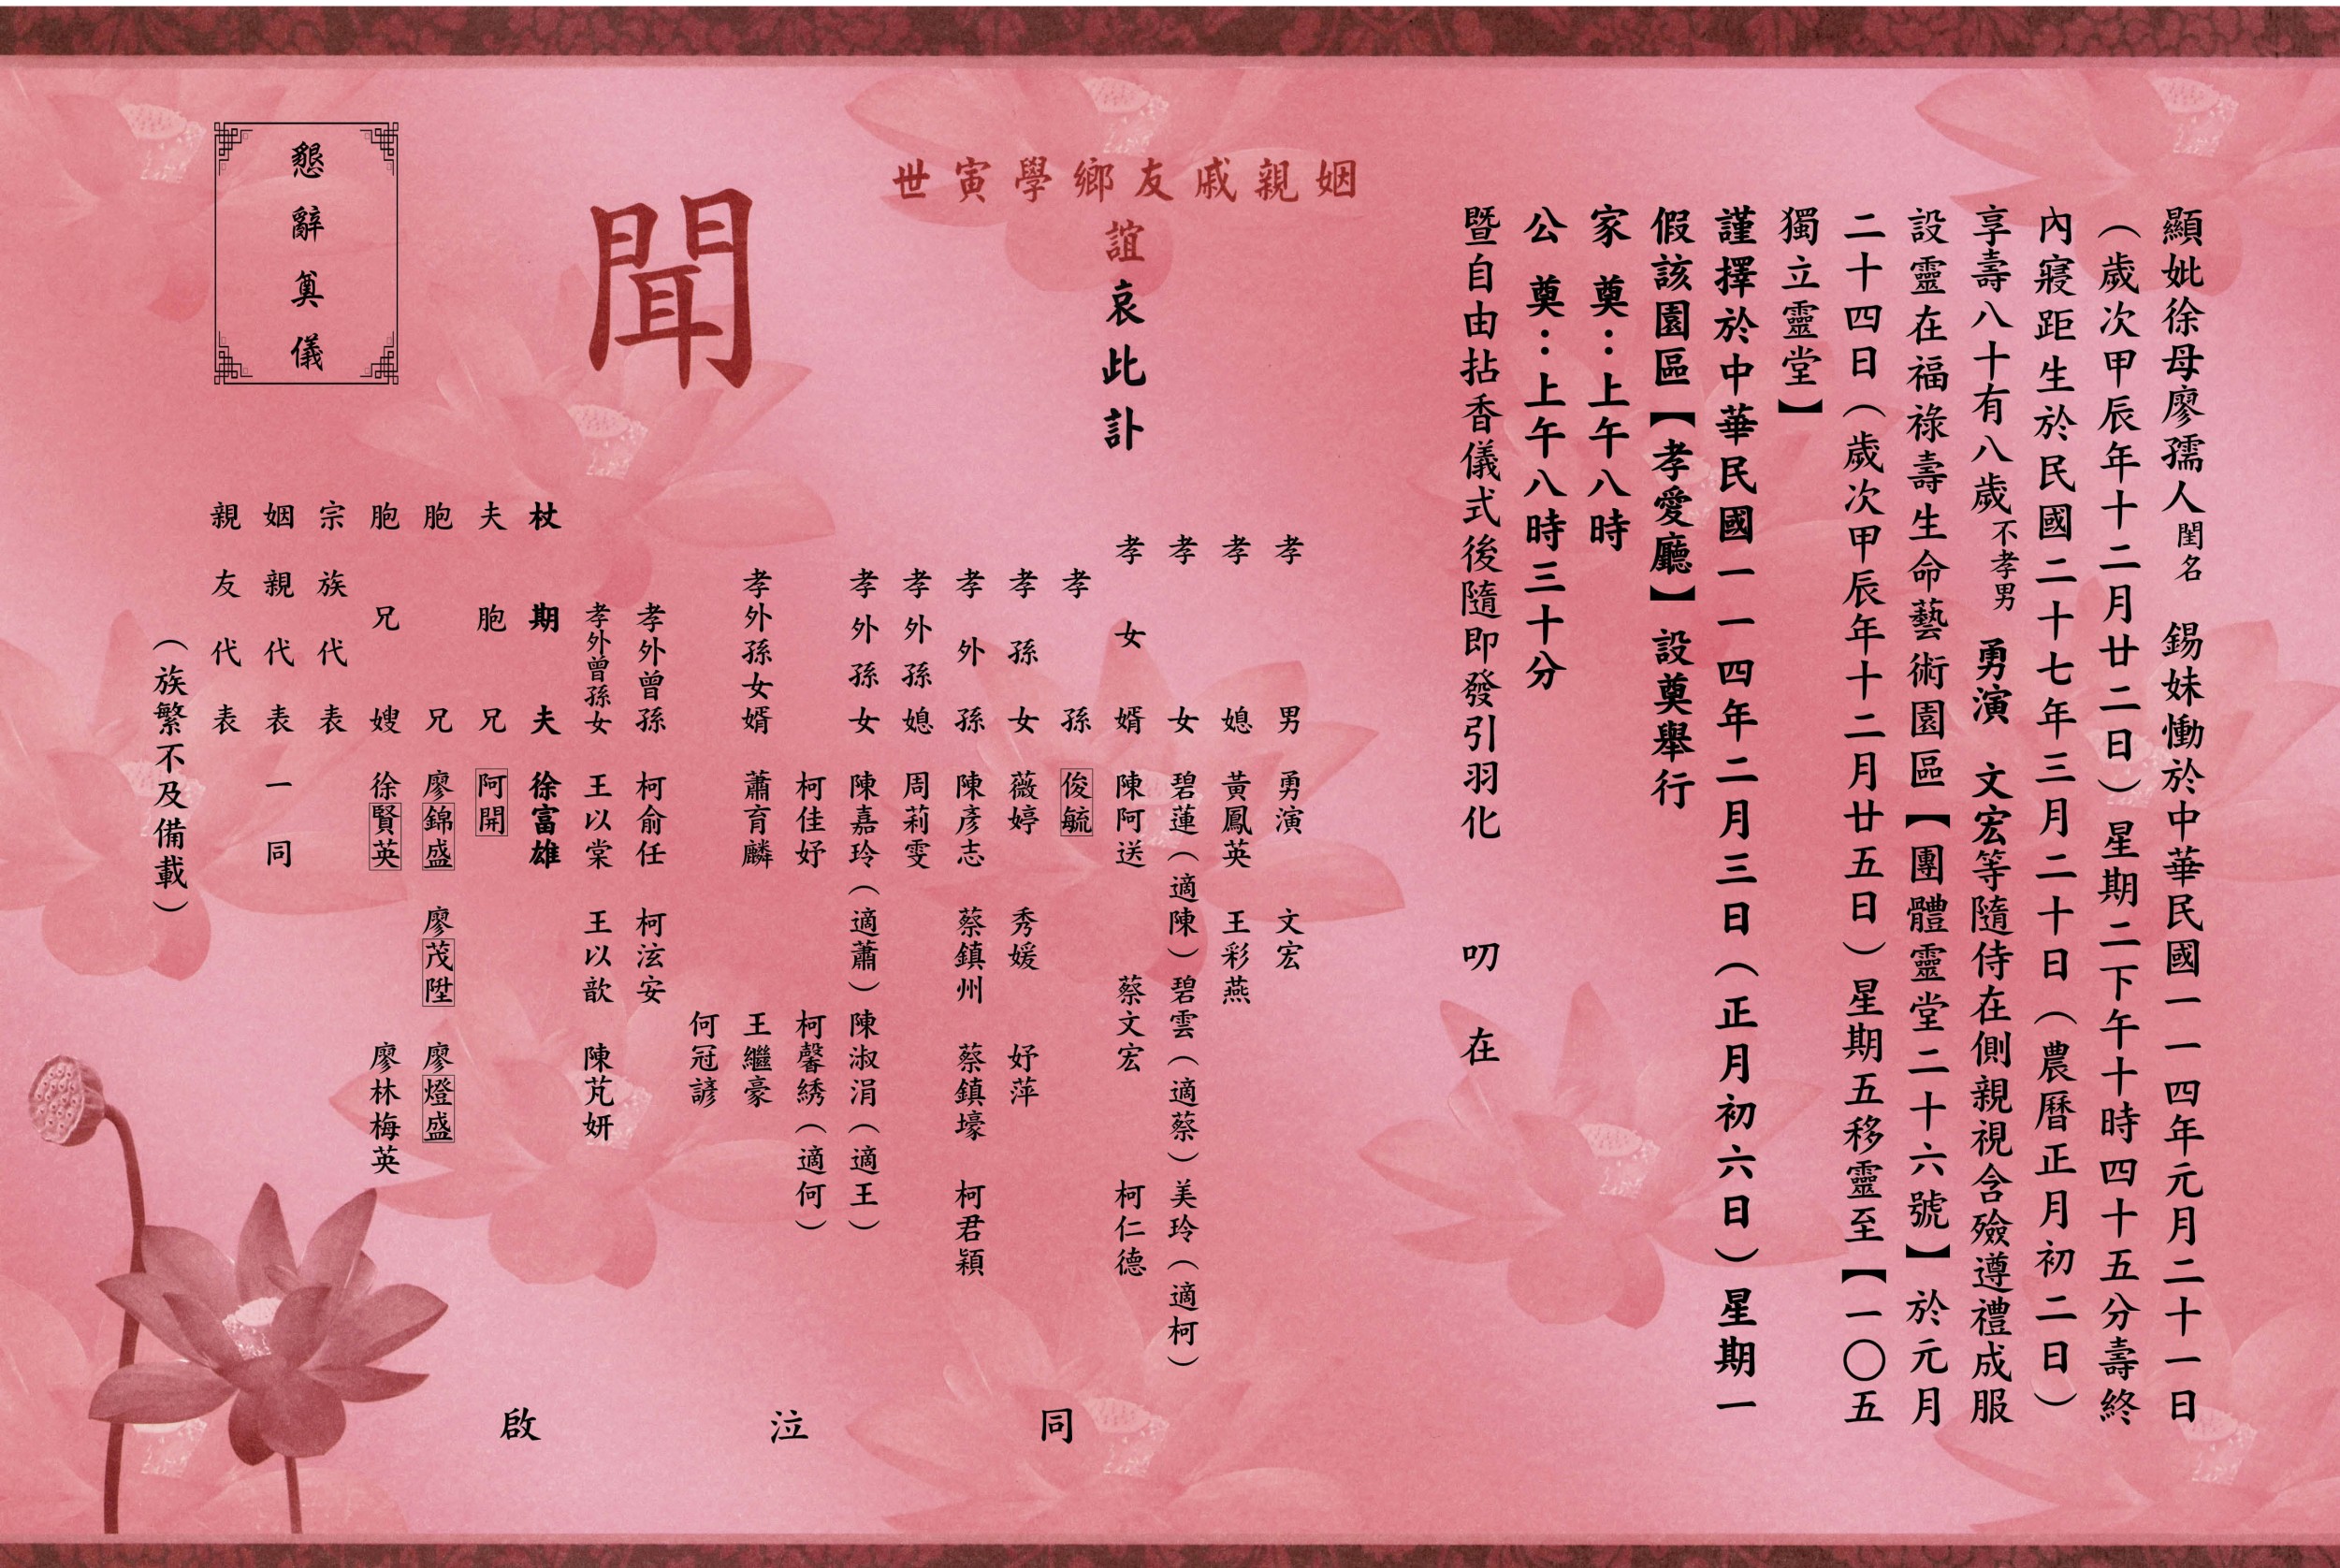 顯妣徐母廖孺人閨名 錫妹慟於中華民國一一四年元月二十一日
（歲次甲辰年十二月廿二日）星期二下午十時四十五分壽終
內寢距生於民國二十七年三月二十日（農曆正月初二日）
享壽八十有八歲不孝男 勇演 文宏等隨侍在側親視含殮遵禮成服
設靈在福祿壽生命藝術園區【團體靈堂二十六號】於元月
二十四日（歲次甲辰年十二月廿五日）星期五移靈至【一〇五
獨立靈堂】
謹擇於中華民國一一四年二月三日（正月初六日）星期一
假該園區【孝愛廳】設奠舉行
家 奠：上午八時
公 奠：上午八時三十分
暨自由拈香儀式後隨即發引羽化 叨 在
姻親戚友鄉學寅世
誼哀此訃
聞
孝男 勇演 文宏
孝媳 黃鳳英 王彩燕
孝女 碧蓮（適陳）碧雲（適蔡）美玲（適柯）
孝女婿 陳阿送 蔡文宏 柯仁德
孝孫 俊毓
孝孫女 薇婷 秀媛 妤萍
孝外孫 陳彥志 蔡鎮州 蔡鎮壕 柯君穎
孝外孫媳 周莉雯
孝外孫女 陳嘉玲（適蕭）陳淑涓（適王）
柯佳妤 柯馨綉（適何）
孝外孫女婿 蕭育麟 王繼豪
何冠諺
孝外曾孫 柯俞任 柯泫安
孝外曾孫女 王以棠 王以歆 陳芃妍
杖期夫 徐富雄
夫胞兄 阿開
胞兄 廖錦盛 廖茂陞 廖燈盛
胞兄嫂 徐賢英 廖林梅英
宗族代表
姻親代表一同
親友代表
（族繁不及備載）
同 泣 啟
懇辭奠儀